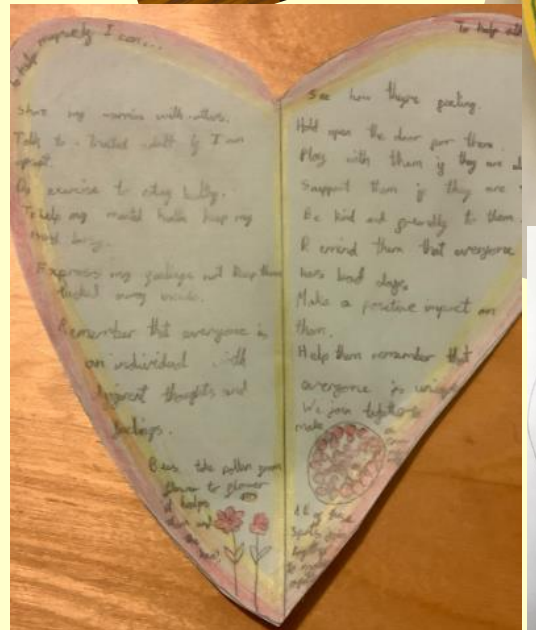 To help myself I can...
Share my worries with others.
Talk to a trusted adult if I am
upset.
Do exercise to stay healthy.
To help my mental health keep my
mind busy.
Express my feelings not keep them
tucked away inside.
Remember that everyone is
an individual with
different thoughts and
feelings.
Bees take pollen from
flower to flower
it helps
them and
the
To help
See how they're feeling.
Hold open the door for them.
Play with them if they are
Support them if they are
Be kind and friendly to them.
Remind them that everyone
has bad days.
Make a positive impact on
them.
Help them remember that
everyone is unique
We join together to
make
All of these
together
to make